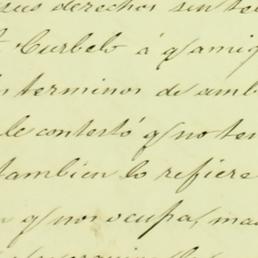 sus derechos sin te
Curbelo á q/ amig
terminos de amb
le contestó q/ no ten
tambien lo refiere
q/ nos ocupa, ma